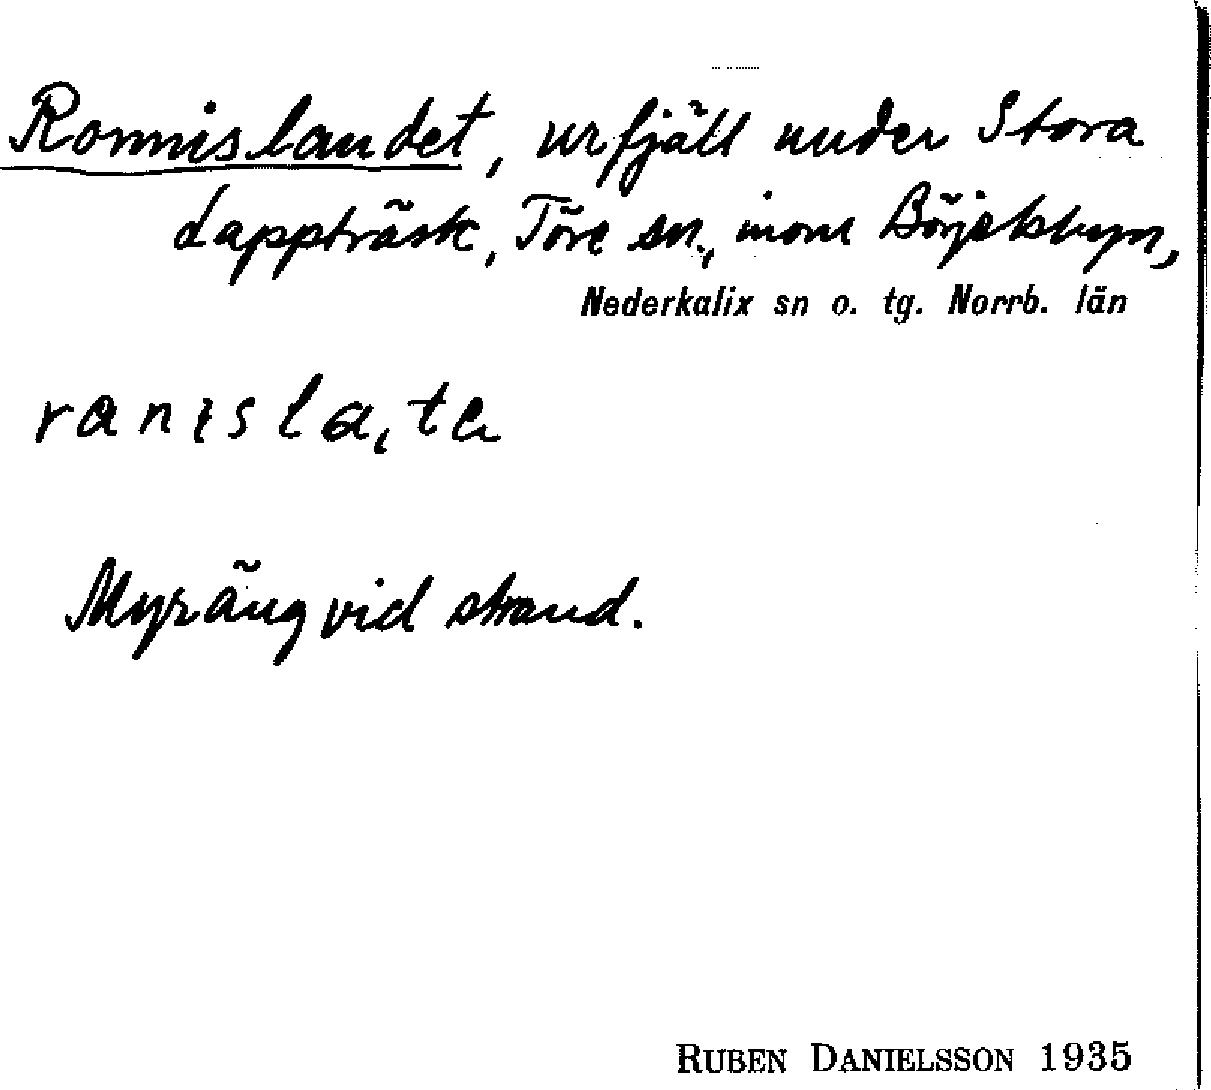 Ronnislandet, urfjäll under Stora
Lappträsk, Töre sn., inom Börjelsbyn,
Nederkalix sn o. tg. Norrb. län
Myräng vid strand.
RUBEN DANIELSSON 1935